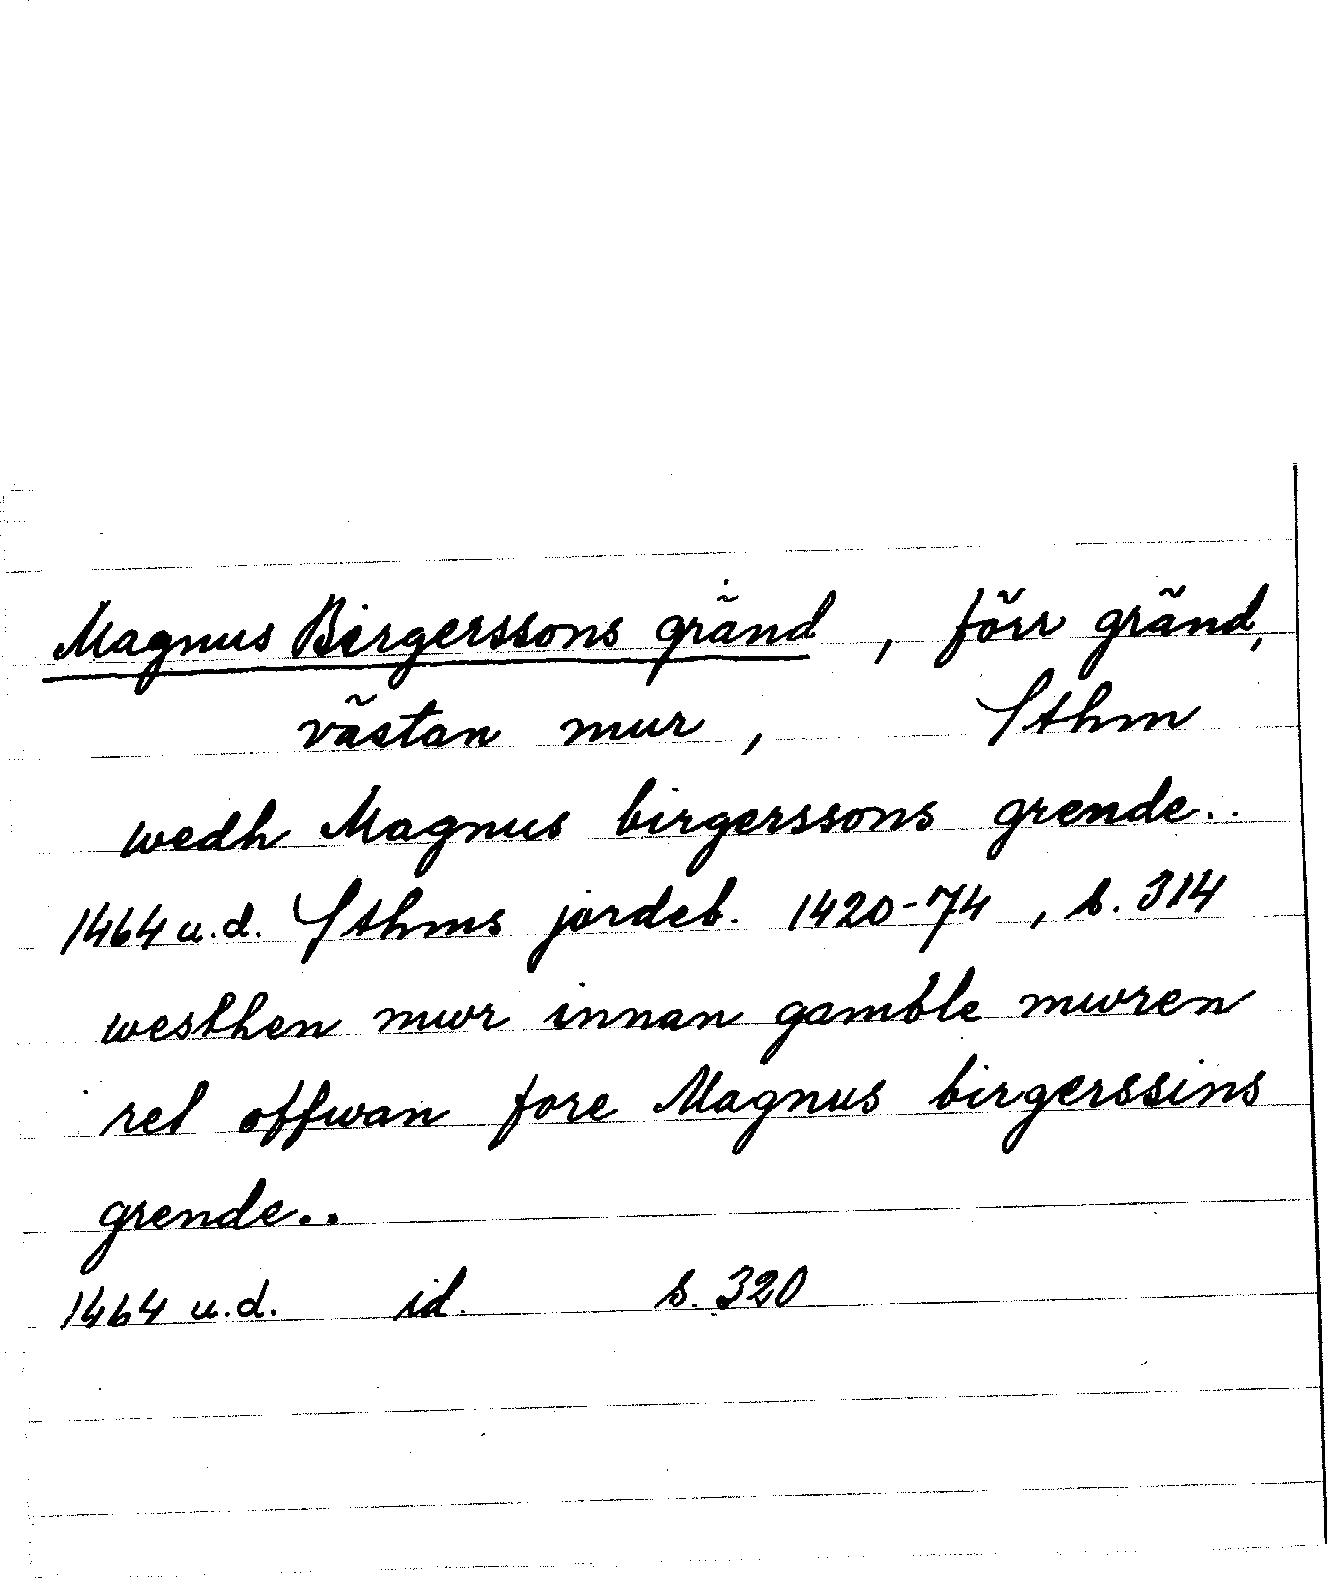 Magnus Birgerssons gränd, förr gränd,
västan mur, Sthm
wedh Magnus birgerssons grende..
1464 u.d. Sthms jordeb. 1420-74, s. 314
westhen mwr innan gamble mwren
ret offwan fore Magnus birgerssins
grende..
1464 u.d. id. s. 320